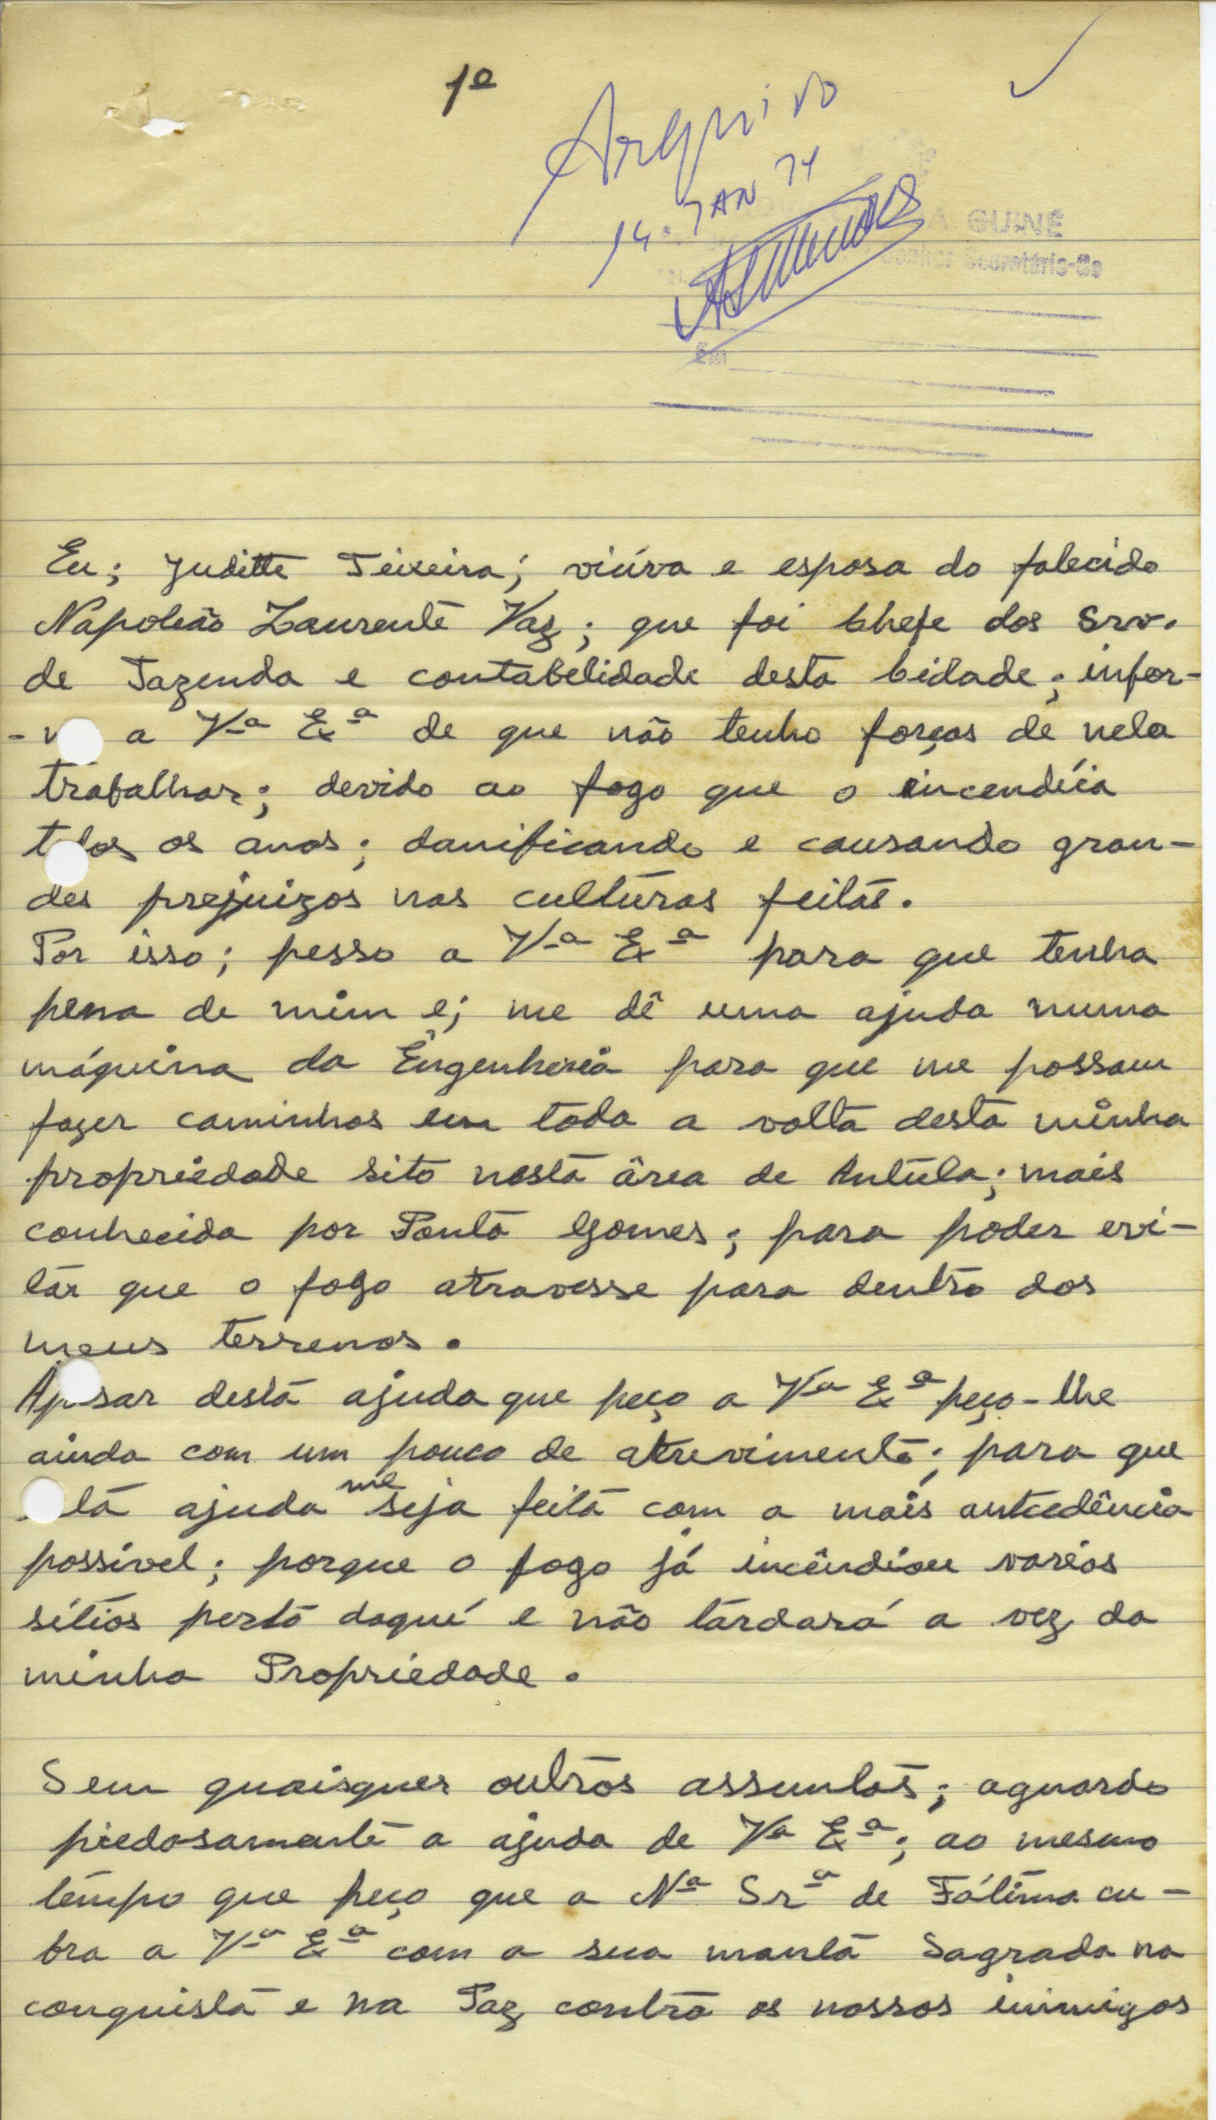 1º
Arquivo
14. JAN 74
GUINÉ
Secretário-
Em
Eu; Juditte Teixeira; viúva e esposa do falecido
Napoleão Laurente Vaz; que foi Chefe dos Srv.
de Fazenda e contabelidade desta Cidade; infor-
- a Vª Exª de que não tenho forças de nela
trabalhar; devido ao fogo que o incendéia
todos os anos; danificando e causando gran-
des prejuizos nas culturas feitas.
Por isso; pesso a Vª Exª para que tenha
pena de mim e; me dê uma ajuda numa
máquina da Engenheria para que me possam
fazer caminhos em toda a volta desta minha
propriedade sito nesta área de Antula; mais
conhecida por Ponta Gomes; para poder evi-
tar que o fogo atravesse para dentro dos
meus terrenos.
Apesar desta ajuda que peço a Vª Exª peço-lhe
ainda com um pouco de atrevimento; para que
ta ajuda me seja feita com a mais antcedência
possível; porque o fogo já incêndiou varios
sítios perto daquí e não tardará a vez da
minha Propriedade.
Sem quaisquer outros assuntos; aguardo
piedosamente a ajuda de Vª Exª; ao mesmo
tempo que peço que a Nª Srª de Fátima cu-
bra a Vª Exª com a sua manta Sagrada na
conquista e na Paz contra os nossos inimigos